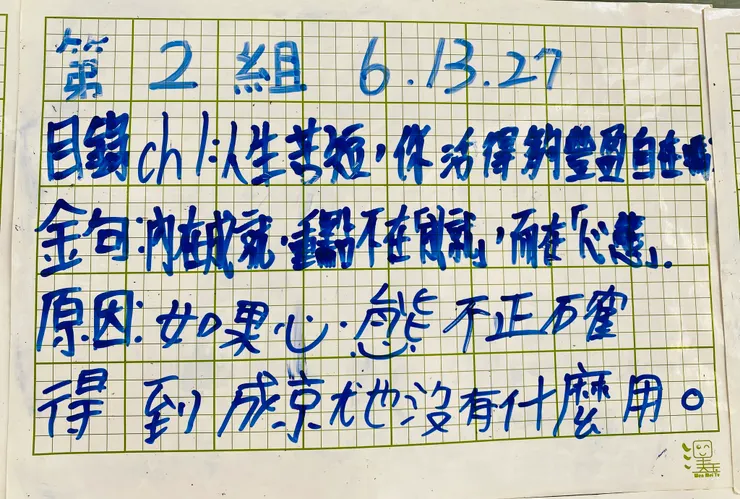 第 2 組 6.13.27
目錄ch1:人生苦短，你活得夠豐盈自在嗎
金句:內在成就，重點不在「成就」，而在「心態」.
原因:如果心態不正確
得到成就也沒有什麼用。